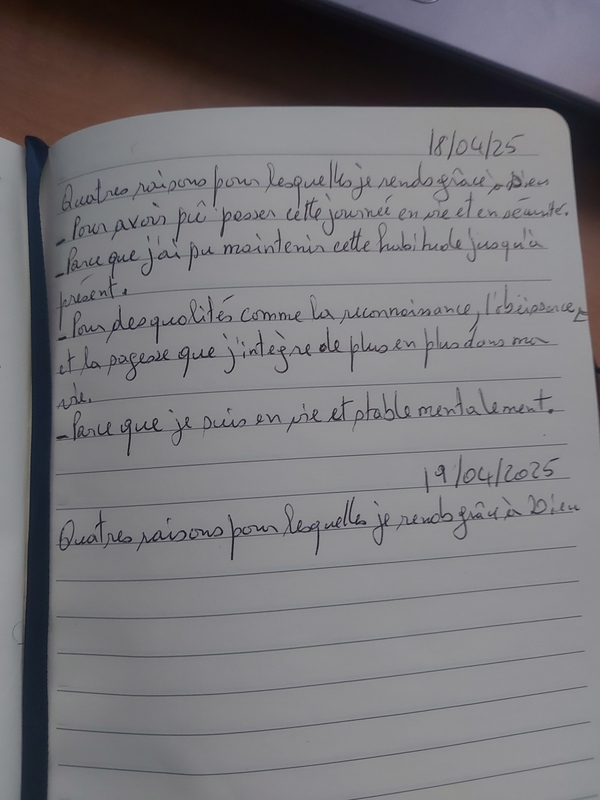 18/04/25
Quatres raisons pour lesquelles je rends grâce à Dieu
- Pour avoir pû passer cette journée en vie et en sécurité.
- Parce que j'ai pu maintenir cette habitude jusqu'à
présent.
- Pour des qualités comme la reconnaissance, l'obéissance,
et la sagesse que j'intègre de plus en plus dans ma
vie.
- Parce que je suis en vie et stable mentalement.
19/04/2025
Quatres raisons pour lesquelles je rends grâce à Dieu